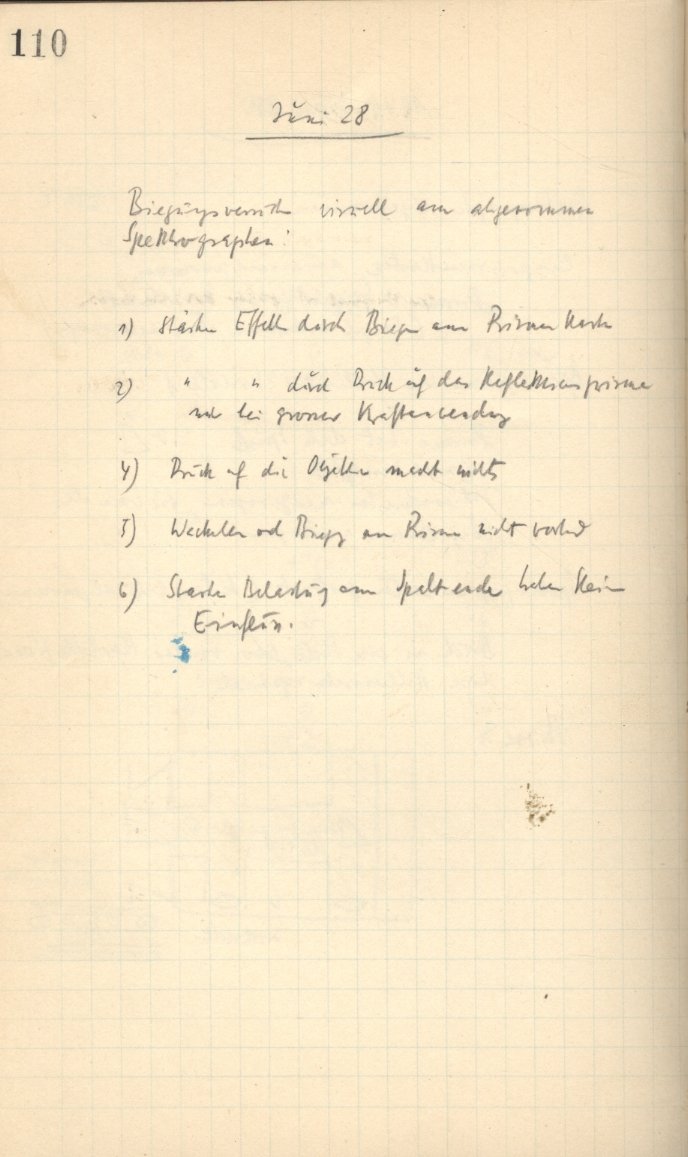 110
Juni 28
Biegungsversuche visuell am abgenommen
Spektrographen:
1) Starker Effekt durch Biegen am Prismenkasten
2) " " durch Druck auf das Reflektionsprisma
nur bei grosser Kraftanwendung
4) Druck auf die Objektive macht nichts
5) Wackeln od Biegg am Prisma nicht vorhd
6) Starke Belastung am Spaltende haben kein
Einfluss.